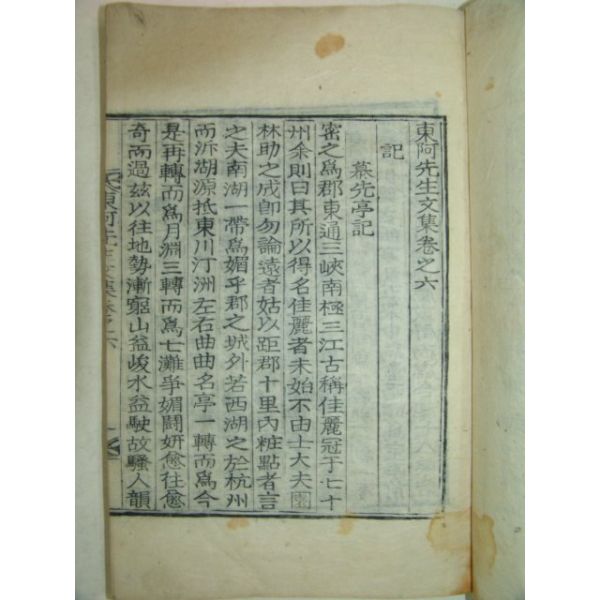 東阿先生文集卷之六
記
慕先亭記
密之爲郡東通三峽南極三江古稱佳麗冠于七十
州余則曰其所以得名佳麗者未始不由士大夫園
林助之成卽勿論遠者姑以距郡十里內粧點者言
之夫南湖一帶爲媚乎郡之城外若西湖之於杭州
而泝湖源抵東川汀洲左右曲曲名亭一轉而爲今
是再轉而爲月淵三轉而爲七灘爭媚鬪妍愈往愈
奇而過玆以往地勢漸窮山益峻水益駛故騷人韻
東阿先生文集卷之六